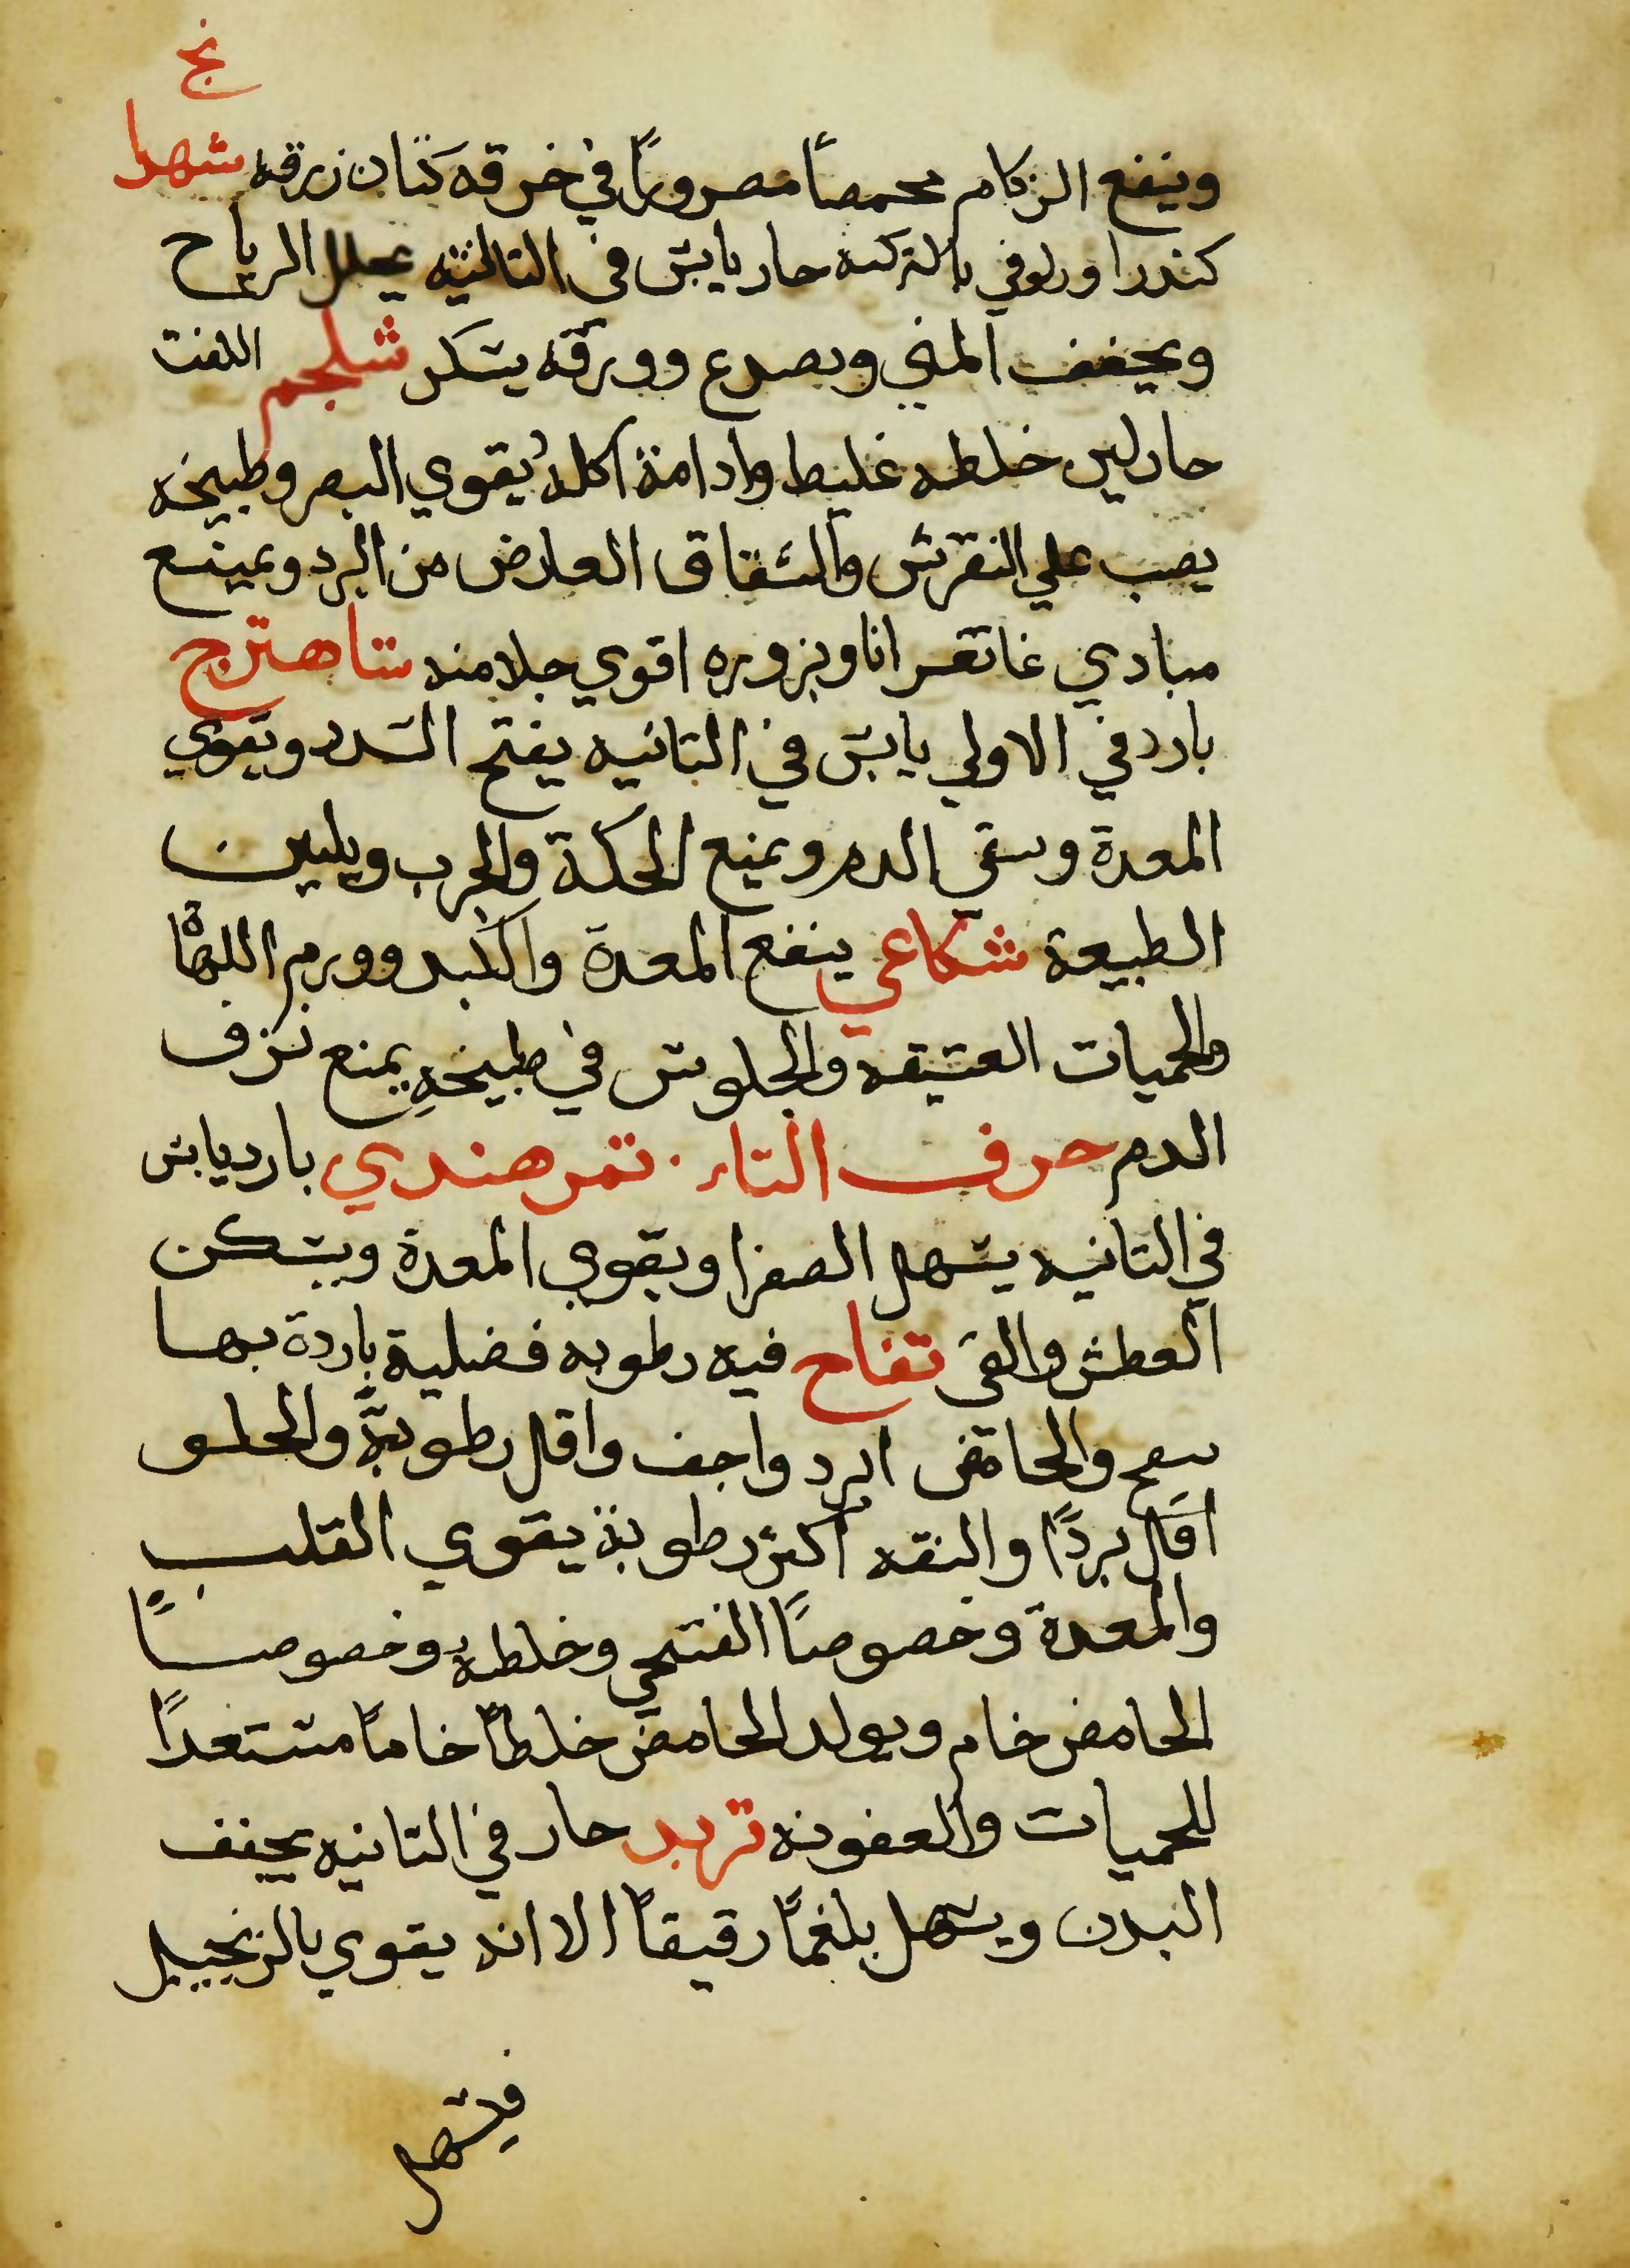 نج
وينفع الزكام محمصاً مصروراً في خرقه كتان زرقه شهدا
كندرا وربوفي بالتركيه حار يابس في الثالثيه يحلل الرياح
ويجفف المني ويصدع وورقه يسكر شلجم اللفت
حار لين خلطه غليط وادامة اكله يقوي البصر وطبيخه
يصب علي النقرس والشقاق العارض من البرد ويمنع
مبادي غانغرانا وبزوره اقوي جلا منه شاهترج
بارد في الاولي يابس في الثانيه يفتح السدد ويقوي
المعدة وينقي الدم ويمنع الحكة والجرب ويليين
الطبيعة شكاعي ينفع المعدة والكبد وورم اللهاة
والحميات العتيقه والجلوس في طبيخه يمنع نزف
الدم حرف التاء تمر هندي بارد يابس
في الثانيه يسهل الصفرا ويقوي المعدة ويسكن
العطش والقي تفاح فيه رطوبه فضلية باردة بها
ينفخ والحامض ابرد واجف واقل رطوبة والحلو
اقل برداً والتفه اكثر رطوبة يقوي القلب
والمعدة وخصوصاً الفتحي وخلطه وخصوصاً
الحامض خام ويولد الحامض خلطاً خاماً مستعداً
للحميات والعفونه تربد حار في الثانيه يجفف
البدن ويسهل بلغماً رقيقاً الا انه يقوي بالزنجبيل
فيسهل